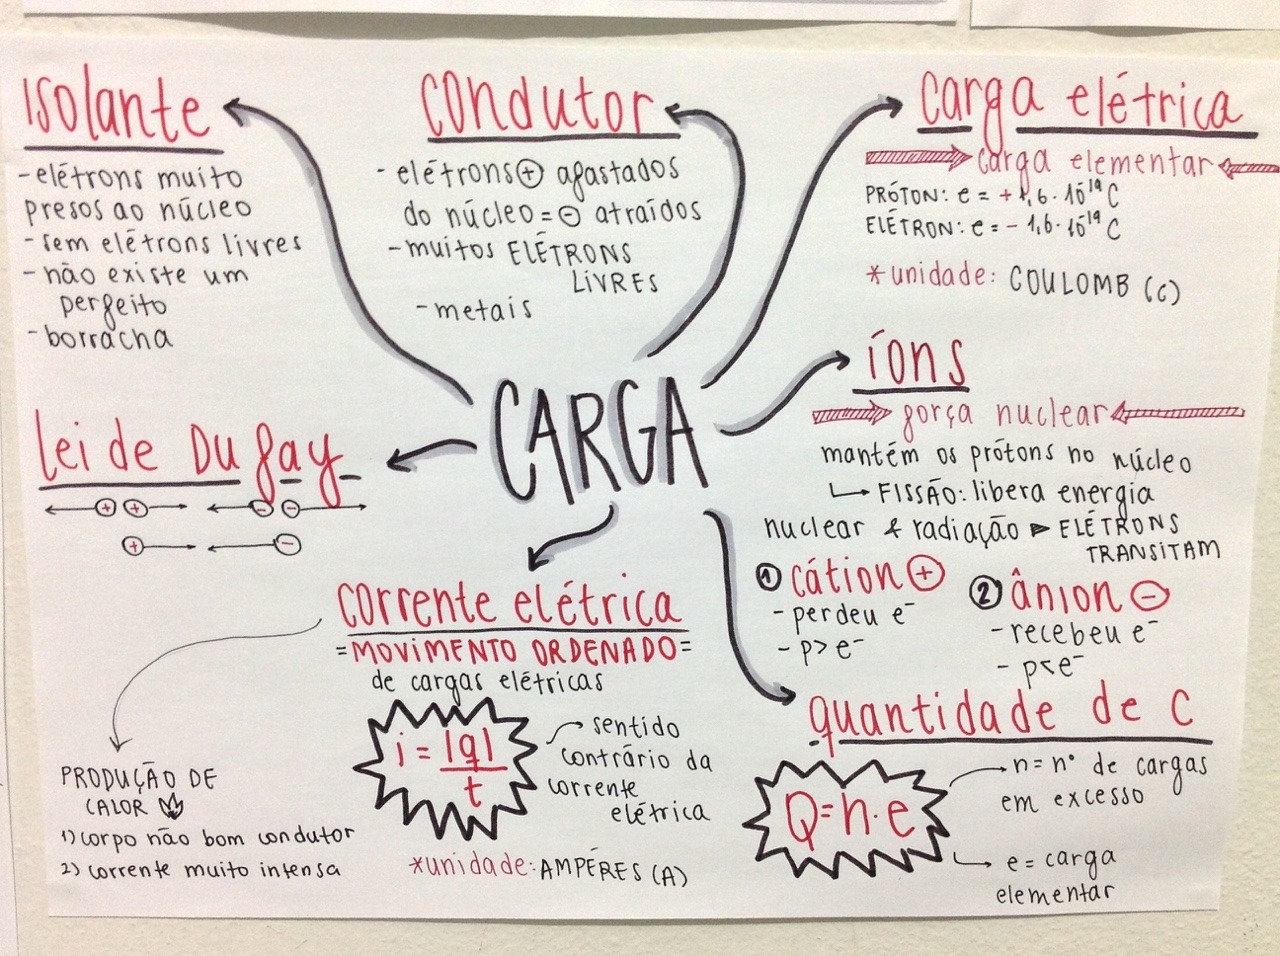 Isolante
-elétrons muito
presos ao núcleo
-sem elétrons livres
-não existe um
perfeito
-borracha
condutor
-elétrons⊕ afastados
do núcleo=⊖ atraídos
-muitos ELÉTRONS
LIVRES
-metais
carga elétrica
carga elementar
PRÓTON: e = +1,6·10¹⁹ C
ELÉTRON: e = -1,6·10¹⁹ C
*unidade: COULOMB (C)
íons
força nuclear
mantém os prótons no núcleo
FISSÃO: libera energia
nuclear + radiação ► ELÉTRONS
TRANSITAM
① cátion ⊕
-perdeu e⁻
-p> e⁻
② ânion ⊖
-recebeu e⁻
-p<e⁻
CARGA
lei de Du fay
+ + - -
+ -
corrente elétrica
=MOVIMENTO ORDENADO=
de cargas elétricas
i = |q|
t
sentido
contrário da
corrente
elétrica
*unidade: AMPÉRES (A)
PRODUÇÃO DE
CALOR
1) corpo não bom condutor
2) corrente muito intensa
quantidade de C
Q=n·e
n=n° de cargas
em excesso
e = carga
elementar